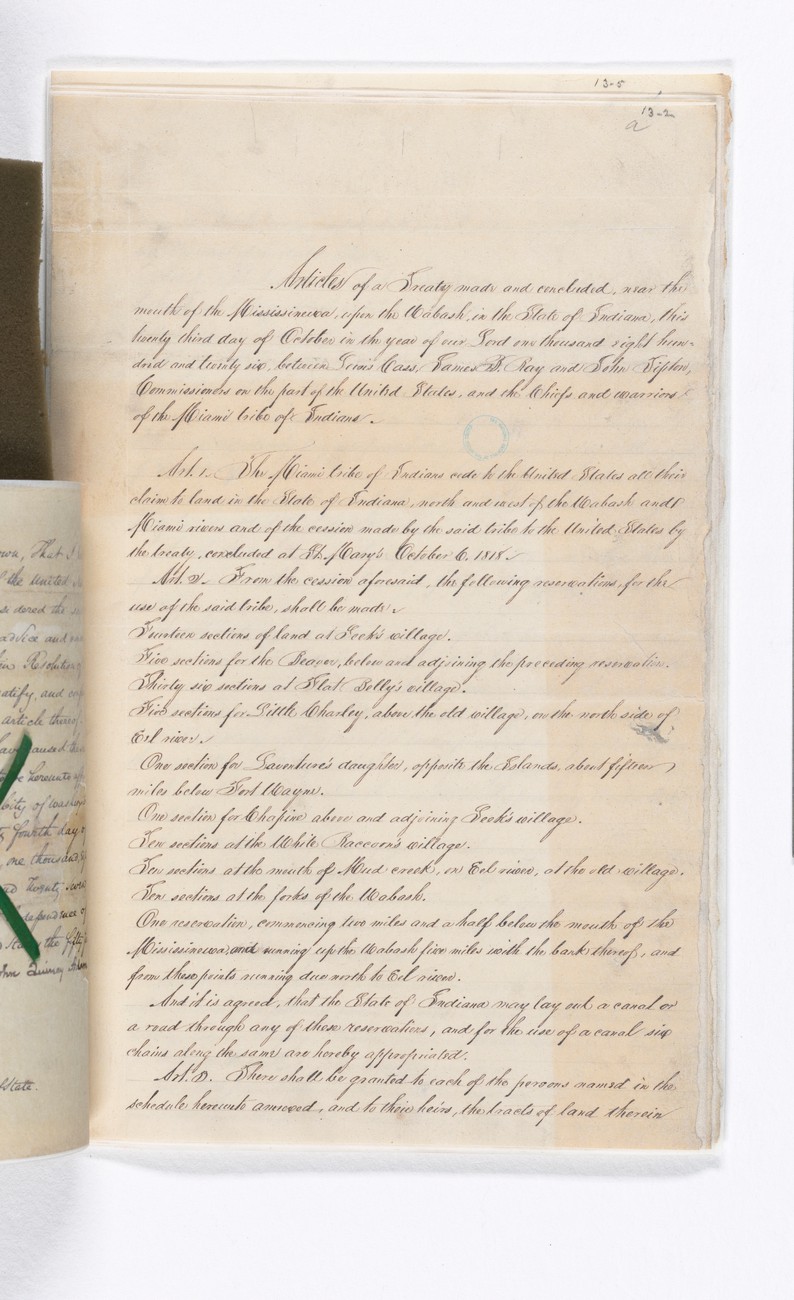 13-5
13-2
a
Articles of a Treaty made and concluded, near the
mouth of the Mississinewa, upon the Wabash, in the State of Indiana, this
twenty third day of October in the year of our Lord one thousand eight hun-
dred and twenty six, between Lewis Cass, James B. Ray and John Tipton,
Commissioners on the part of the United States, and the Chiefs and warriors
of the Miami tribe of Indians.
Art. 1. The Miami tribe of Indians cede to the United States all their
claim to land in the State of Indiana, north and west of the Wabash and
Miami rivers and of the cession made by the said tribe to the United States by
the treaty, concluded at St. Mary's October 6, 1818.
Art. 2. From the cession aforesaid, the following reservations, for the
use of the said tribe, shall be made.
Fourteen sections of land at Seek's village.
Five sections for the Beaver, below and adjoining the preceding reservation.
Thirty six sections at Flat Belly's village.
Five sections for Little Charley, above the old village, on the north side of
Eel river.
One section for Laventure's daughter, opposite the Islands, about fifteen
miles below Fort Wayne.
One section for Chapine above and adjoining Seek's village.
Ten sections at the White Raccoon's village.
Ten sections at the mouth of Mud creek, on Eel river, at the old village.
Ten sections at the forks of the Wabash.
One reservation, commencing two miles and a half below the mouth of the
Mississinewa, and running up the Wabash five miles with the bank thereof, and
from these points running due north to Eel river.
And it is agreed, that the State of Indiana may lay out a canal or
a road through any of these reservations, and for the use of a canal six
chains along the same are hereby appropriated.
Art. 3. There shall be granted to each of the persons named in the
schedule hereunto annexed, and to their heirs, the tracts of land therein
That I
the United
dered the
advice and
Resolution
ratify, and
article thereof
caused the
hereunto
City of Washing
fourth day
one thousand
and twenty
Independence of
the fifty
John Quincy Adams
State.